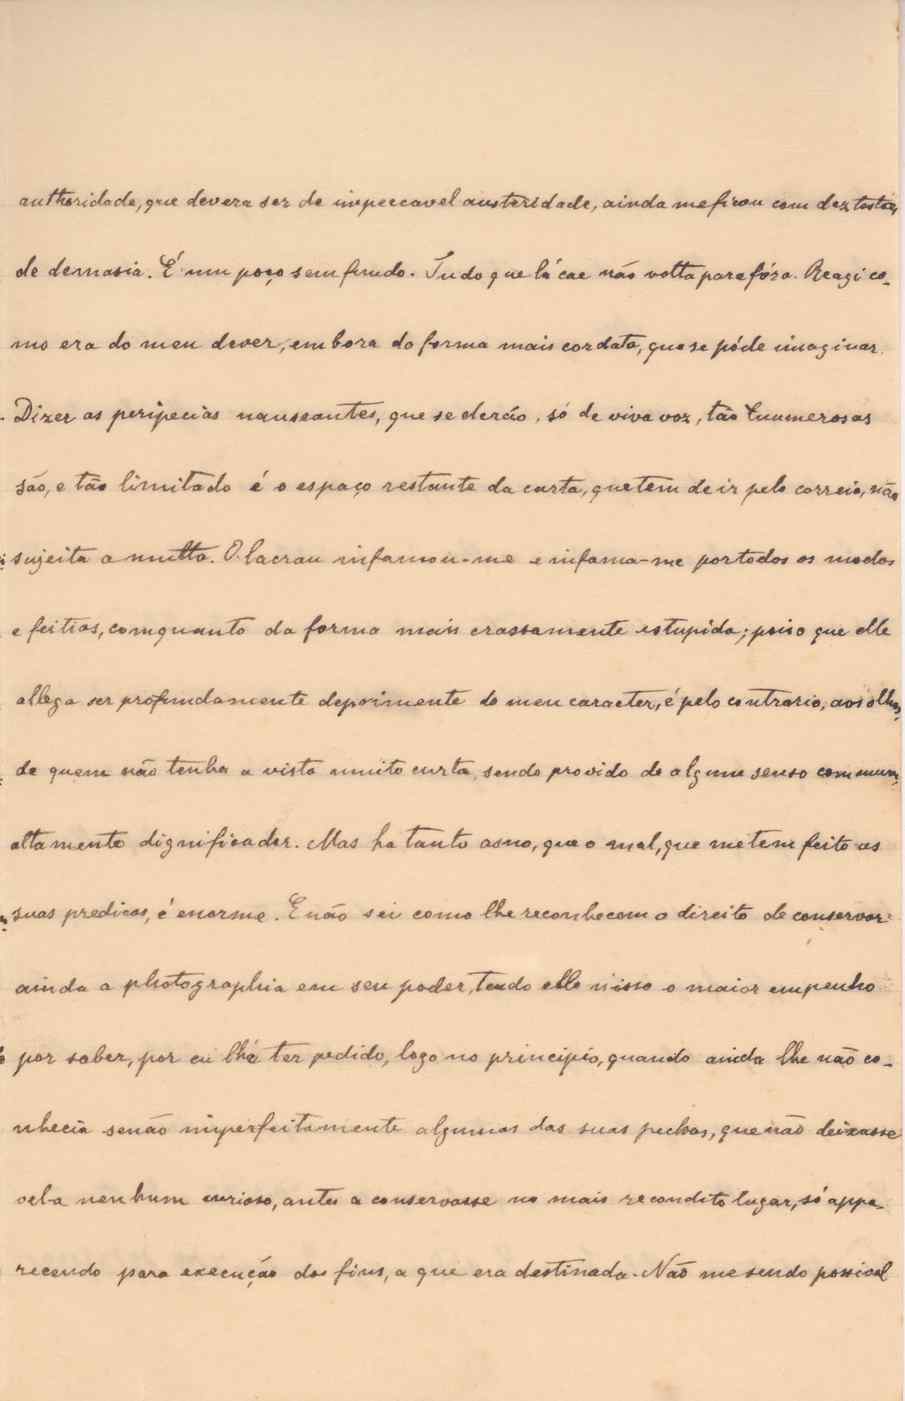 authoridade, que devera ser de impeccavel austeridade, ainda me ficou com dez tostões
de demasia. É um poço sem fundo. Tudo que lá cae não volta para fóra. Reagi co-
mo era do meu dever, embora da forma mais cordata, que se póde imaginar.
Dizer as peripecias nauseantes, que se derão, só de viva voz, tão innumerosas
são, e tão limitado é o espaço restante da carta, que tem de ir pelo correio, não
sujeita a multa. O lacrau infamou-me e infama-me por todos os modos
e feitios, comquanto da forma mais crassamente estupida; pois o que elle
allega ser profundamente deprimente do meu caracter, é pelo contrario, aos olhos
de quem não tenha a vista muito curta, sendo provido de algum senso commum,
altamente dignificador. Mas ha tanto asno, que o mal, que me tem feito as
suas predicas, é enorme. E não sei como lhe reconhecem o direito de conservar
ainda a photographia em seu poder, tendo elle nisso o maior empenho
por saber, por eu lh'a ter pedido, logo no principio, quando ainda lhe não co-
nhecia senão imperfeitamente algumas das suas pechas, que não deixasse
vel-a nenhum curioso, antes a conservasse no mais recondito lugar, só appa-
recendo para execução dos fins, a que era destinada. Não me sendo possivel